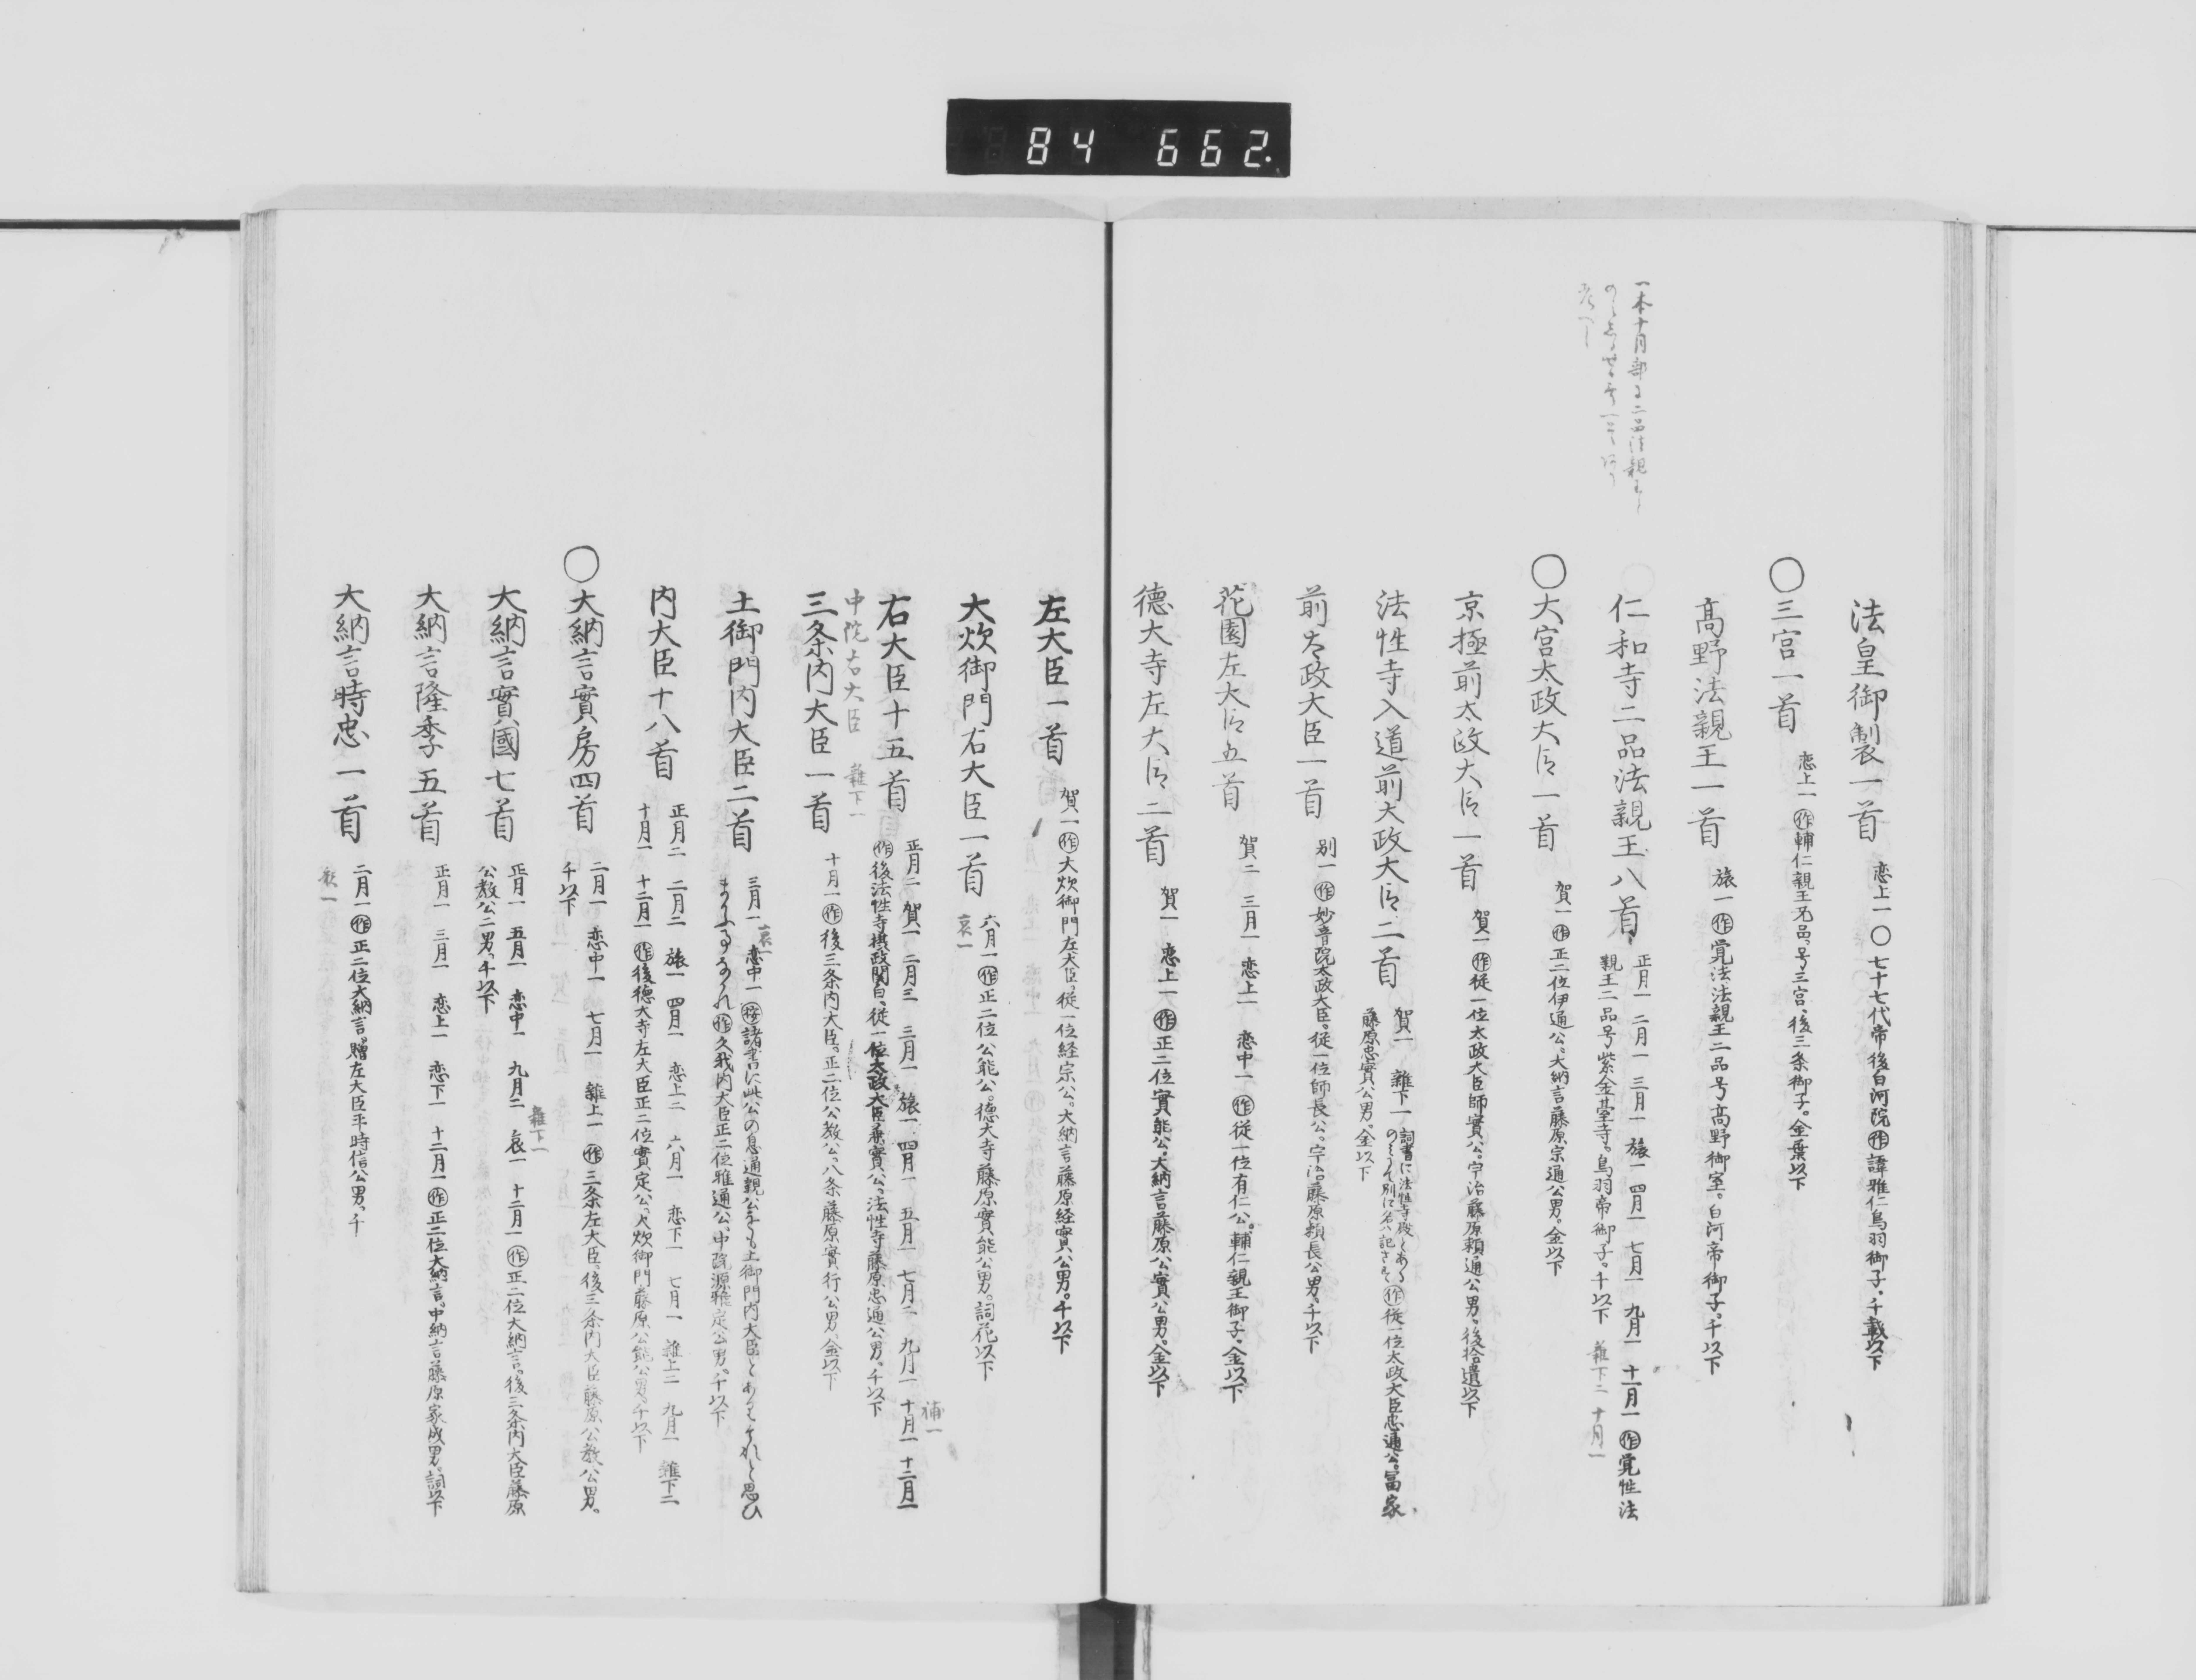 84 662.
一本十月部に二品法親王
法皇御製一首
恋上一〇七十七代帝後白河院㊟諱雅仁鳥羽御子。千載以下
〇三宮一首
恋上一 輔仁親王 号三宮、後三条御子。金葉以下
高野法親王一首
旅一 作 覚法法親王二品号高野御室。白河帝御子。千以下
仁和寺二品法親王八首
正月一 二月一 三月一 旅一 四月一 七月一 九月一 十一月一 作 覚性法
親王二品号紫金臺寺。鳥羽帝御子。千以下 雑下二 十月一
〇大宮太政大臣一首
賀一 作 正二位伊通公。大納言藤原宗通公男。金以下
京極前太政大臣一首
賀一 作 従一位太政大臣師實公。宇治藤原頼通公男。後拾遺以下
法性寺入道前太政大臣二首
賀一 雑下一 詞書に法性寺殿とある
別に名ハ記さす 作 従一位太政大臣忠通公。冨家
藤原忠實公男。金以下
前太政大臣一首
別一 作 妙音院太政大臣。従一位師長公。宇治。藤原頼長公男。千以下
花園左大臣五首
賀二 三月一 恋上一 恋中一 作 従一位有仁公。輔仁親王御子。金以下
德大寺左大臣二首
賀一 恋上一 作 正二位實能公。大納言藤原公實公男。金以下
左大臣一首
賀一 作 大炊御門左大臣。従一位経宗公。大納言藤原経實公男。千以下
大炊御門右大臣一首
六月一 作 正二位公能公。德大寺藤原實能公男。詞花以下
哀一
右大臣十五首
正月二 賀一 二月三 三月一 旅一 四月一 五月一 七月二 九月一 十月一 十二月一
補一
作 後法性寺摂政関白、従一位太政大臣兼實公。法性寺藤原忠通公男。千以下
中院右大臣 雑下一
三条内大臣一首
十月一 作 後三条内大臣。正二位公教公。八条藤原實行公男。金以下
土御門内大臣二首
三月一 哀一 恋中一 按 諸書に此公の息通親公をも土御門内大臣とあり それと思ひ
作 久我内大臣正二位雅通公。中院源雅定公男。千以下
内大臣十八首
正月二 二月二 旅一 四月一 恋上二 六月一 恋下一 七月一 雑上二 九月一 雑下二
十月一 十二月一 作 後德大寺左大臣正二位實定公。大炊御門藤原公能公男。千以下
〇大納言實房四首
二月一 恋中一 七月一 雑上一 作 三条左大臣。後三条内大臣藤原公教公男。
千以下
大納言實國七首
正月一 五月一 恋中一 九月二 哀一 十二月一 作 正二位大納言。後三条内大臣藤原
雑下一
公教公二男。千以下
大納言隆季五首
正月一 三月一 恋上一 恋下一 十二月一 作 正二位大納言。中納言藤原家成男。詞以下
大納言時忠一首
二月一 作 正二位大納言。贈左大臣平時信公男。千